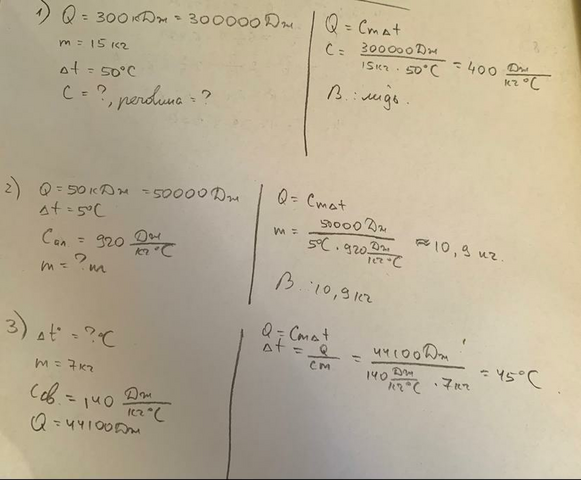 1) Q = 300кДж = 300000Дж
m = 15кг
Δt = 50°C
C = ?, речовина = ?
Q = CmΔt
C = 300000Дж / 15кг · 50°C = 400 Дж/кг°C
В.: мідь.
2) Q = 50кДж = 50000Дж
Δt = 5°C
Cал = 920 Дж/кг°C
m = ? m
Q = CmΔt
m = 50000Дж / 5°C · 920 Дж/кг°C ≈ 10,9 кг.
В.: 10,9кг
3) Δt° = ?°C
m = 7кг
Cсв. = 140 Дж/кг°C
Q = 44100Дж
Q = CmΔt
Δt = Q/cm = 44100Дж / 140 Дж/кг°C · 7кг = 45°C